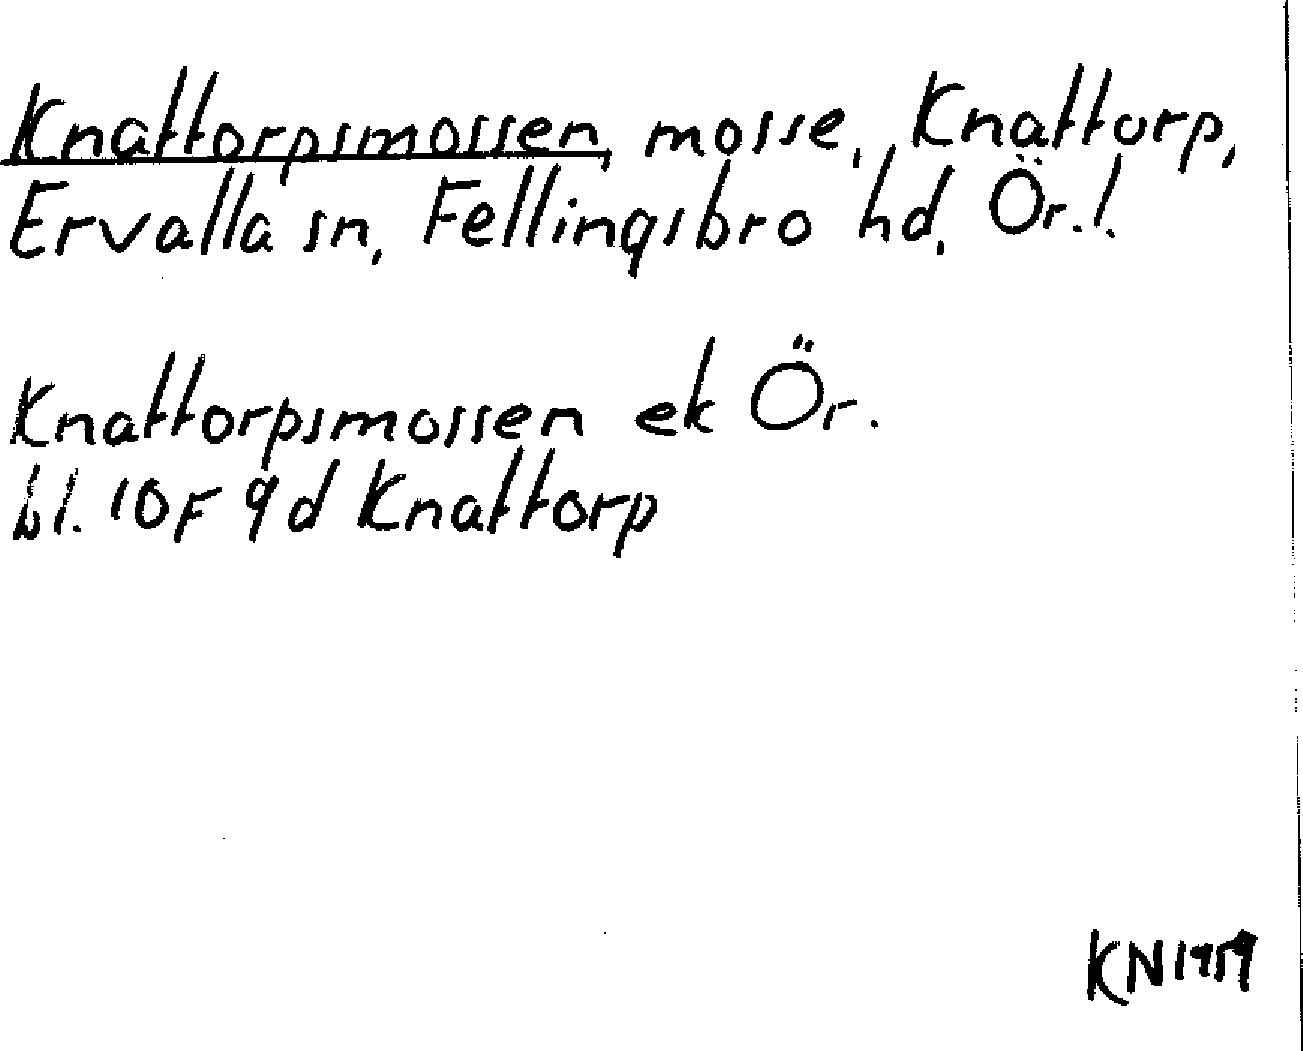 Knattorpsmossen, mosse, Knattorp,
Ervalla sn, Fellingsbro hd, Ör.l.
Knattorpsmossen ek Ör.
bl. 10F 9d Knattorp
KN1959